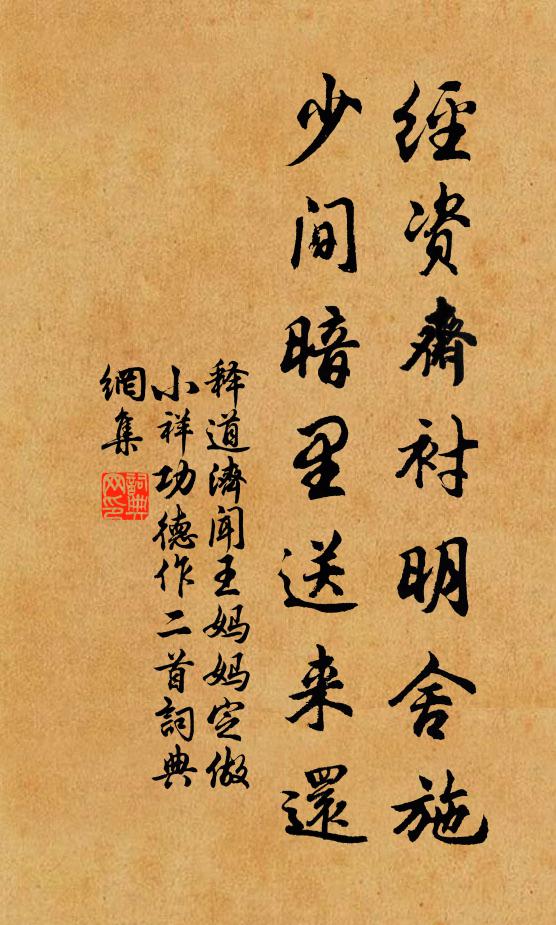 經资齋衬明舍施
少间暗里送来還
释道濟闻王妈妈定做
小祥功德作二首詞典
網集
詞典网印